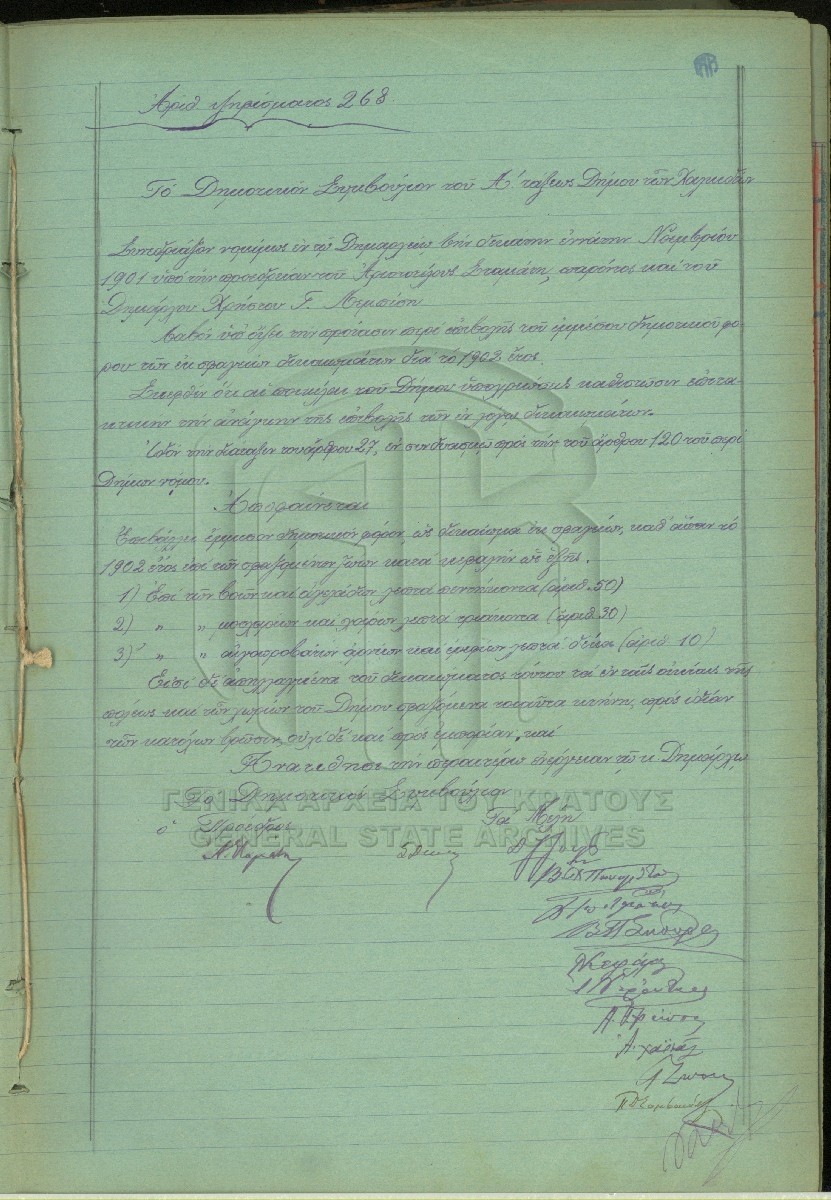 Ἀριθ ψηφίσματος 268
Τό Δημοτικόν Συμβούλιον τοῦ Α΄. τάξεως Δήμου τῶν Χαλκιδέων
Συνεδριάσαν νομίμως ἐν τῷ Δημαρχείῳ τὴν δεκάτην ἐννάτην Νοεμβρίου
1901 ὑπό τήν προεδρείαν τοῦ Ἀριστοτέλους Σταμάτη, παρόντος καί τοῦ
Δημάρχου Χρήστου Γ.
Λαβόν ὑπ' ὄψει τήν πρότασιν περί ἐπιβολῆς τοῦ ἐμμέσου δημοτικοῦ φό-
ρου τῶν ἐκ σφαγείων δικαιωμάτων διά τό 1902 ἔτος
Σκεφθέν ὅτι αἱ ποικίλαι τοῦ Δήμου ὑποχρεώσεις καθιστῶσιν ἐπιτα-
κτικήν τήν ἀνάγκην τῆς ἐπιβολῆς τῶν ἐν λόγῳ δικαιωμάτων.
Ἰδόν τήν διάταξιν τοῦ ἄρθρου 27, ἐν συνδυασμῷ πρός τήν τοῦ ἄρθρου 120 τοῦ περί
Δήμων νόμου.
Ἀποφαίνεται
Ἐπιβάλλει ἔμμεσον δημοτικόν φόρον, ὡς δικαίωμα ἐκ σφαγείων, καθ' ἅπαν τό
1902 ἔτος ἐπί τῶν σφαζομένων ζώων κατά κεφαλήν ὡς ἑξῆς.
1) Ἐπί τῶν βοῶν καί ἀγελάδων λεπτά πεντήκοντα (ἀριθ. 50)
2) " " μοσχαρίων καί χοίρων λεπτά τριάκοντα (ἀριθ 30)
3) " " αἰγοπροβάτων ἀρνίων καί ἐριφίων λεπτά δέκα (ἀριθ 10)
Εἰσί δέ ἀπηλλαγμένα τοῦ δικαιώματος τούτου τά ἐν ταῖς οἰκίαις τῆς
πόλεως καί τῶν χωρίων τοῦ Δήμου σφαζόμενα τοιαῦτα κτήνη, πρός ἰδίαν
τῶν κατόχων βρῶσιν, οὐχί δέ καί πρός ἐμπορίαν, καί
Ἀνατίθησι τήν περαιτέρω ἐνέργειαν τῷ κ. Δημάρχῳ
Τό Δημοτικόν Συμβούλιον
ὁ Πρόεδρος Τά Μέλη
ΓΕΝΙΚΑ ΑΡΧΕΙΑ ΤΟΥ ΚΡΑΤΟΥΣ
GENERAL STATE ARCHIVES